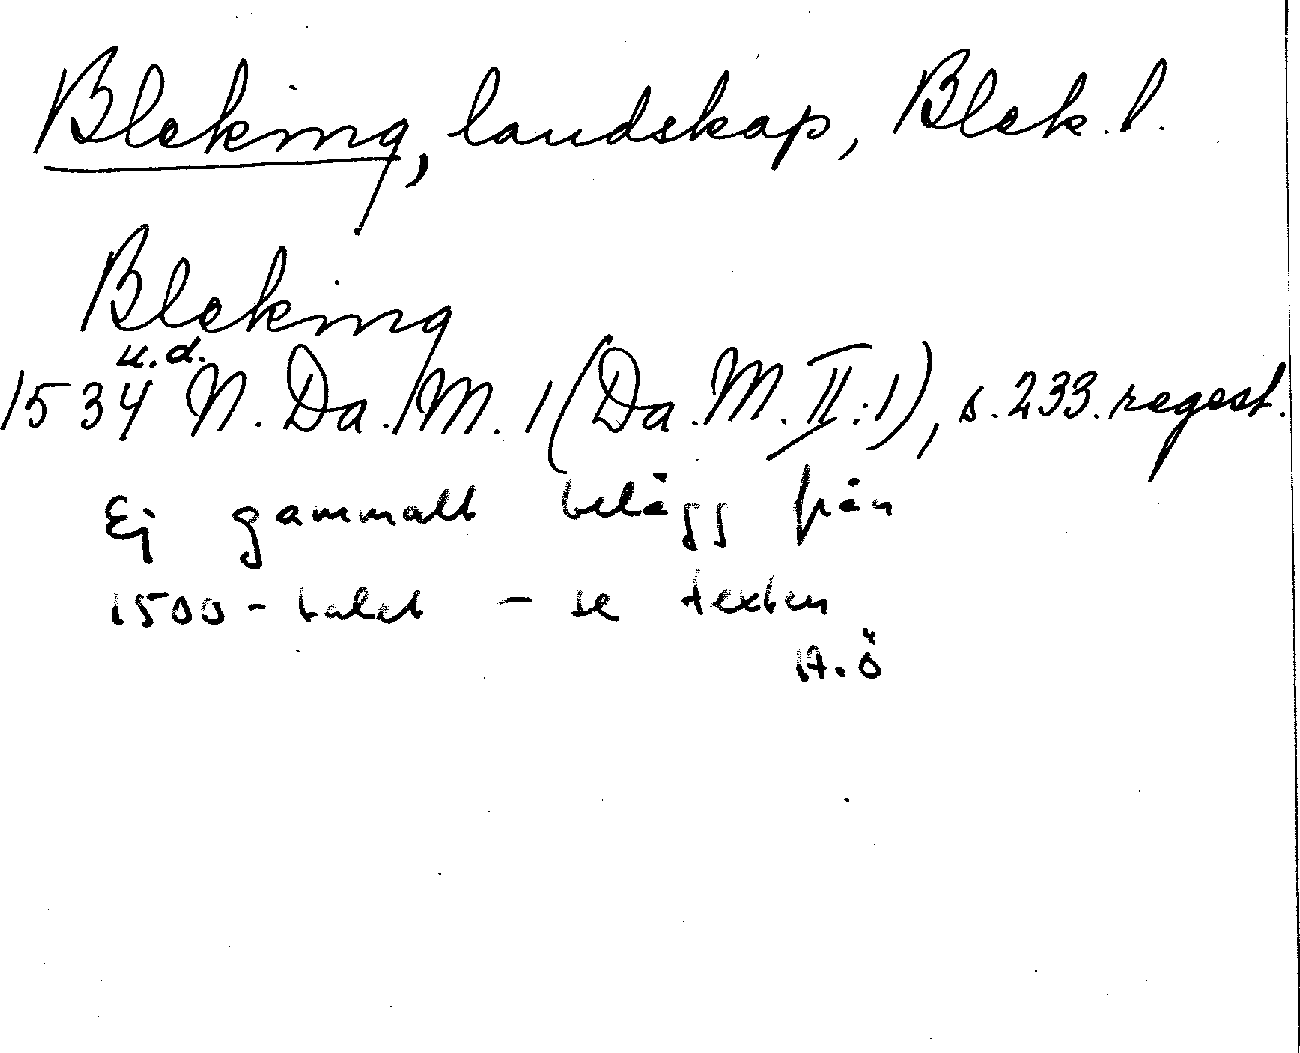 Bleking, landskap, Blek. l.
Bleking
u.d.
1534 N. Da. M. 1 (Da. M. II:1), s. 233. regest.
Ej gammalt belägg från
1500-talet - se texten
A.Ö